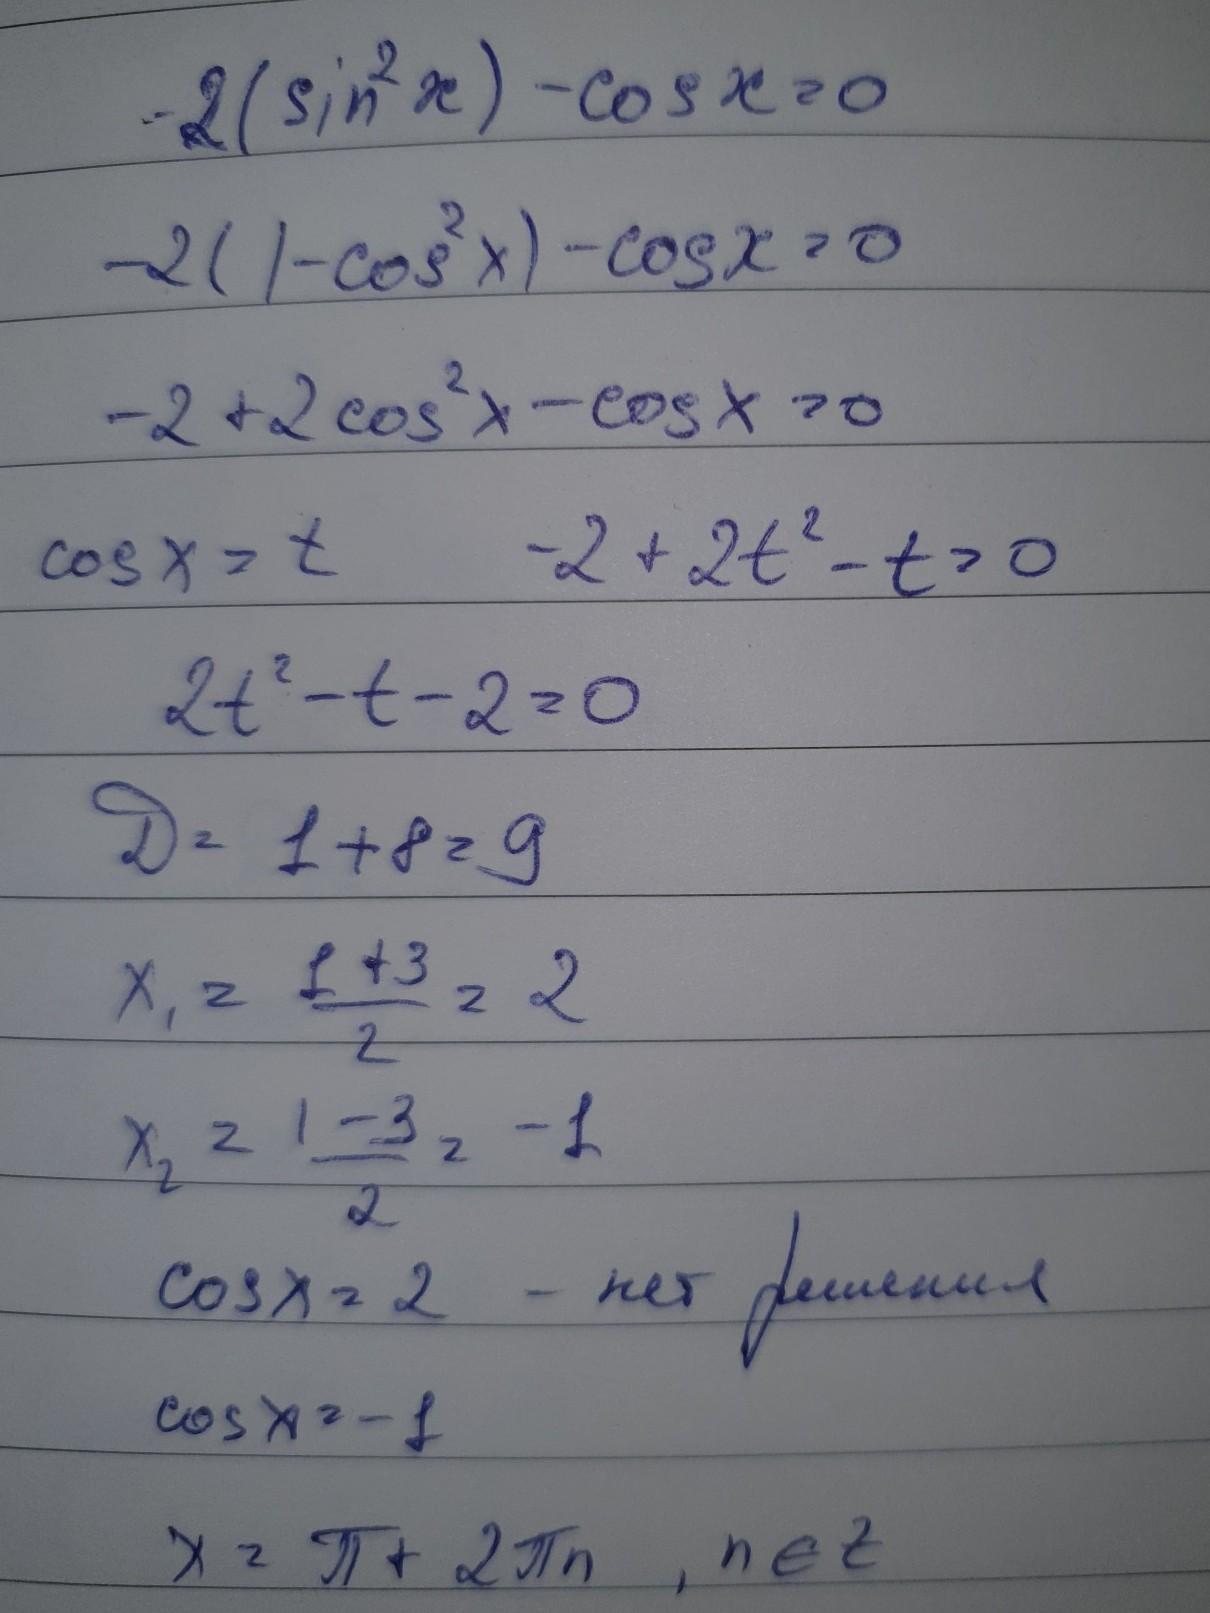 -2(sin²x) - cosx = 0
-2(1 - cos²x) - cosx = 0
-2 + 2cos²x - cosx = 0
cosx = t -2 + 2t² - t = 0
2t² - t - 2 = 0
D = 1 + 8 = 9
x₁ = (1 + 3)/2 = 2
x₂ = (1 - 3)/2 = -1
cosx = 2 - нет решения
cosx = -1
x = π + 2πn, n ∈ Z